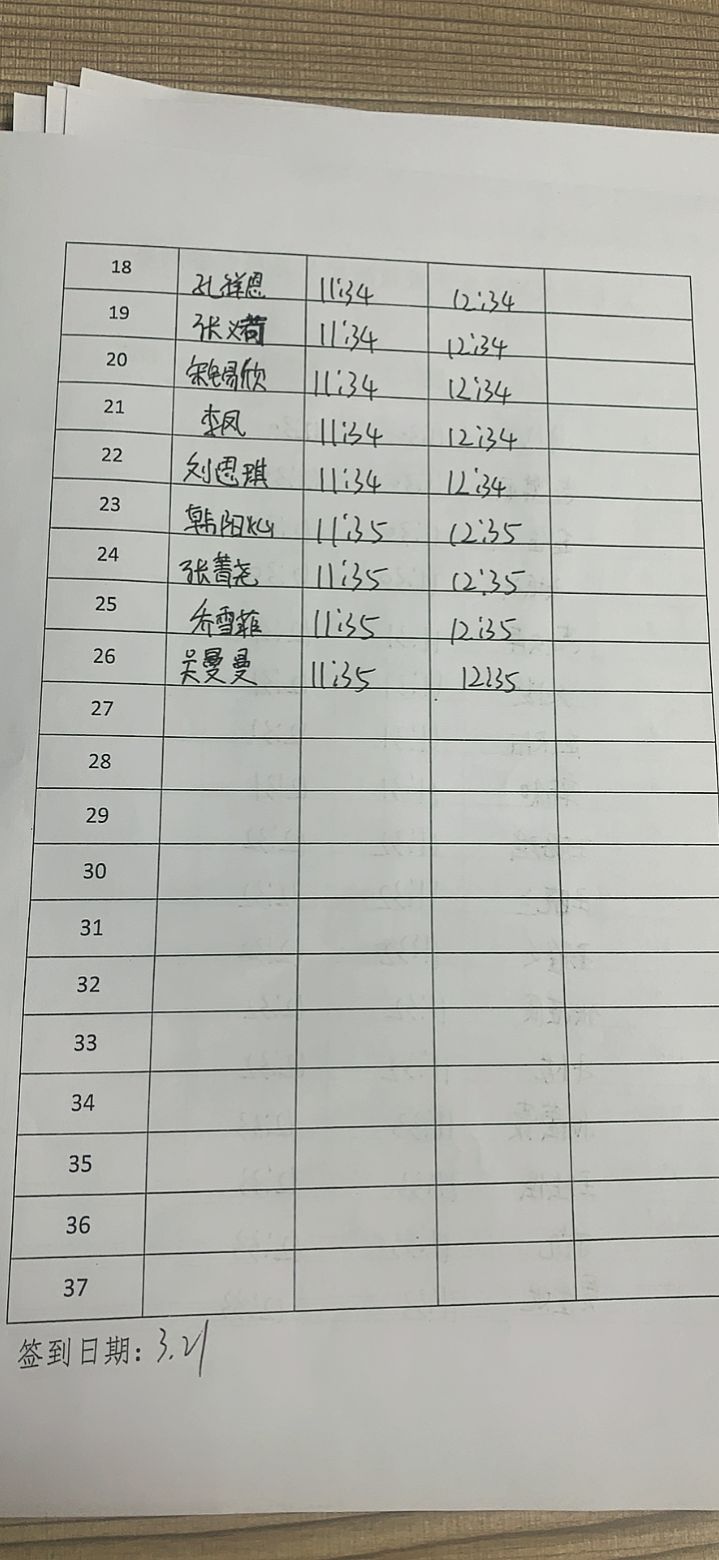 18 孔祥恩 11:34 12:34
19 张义 11:34 12:34
20 11:34 12:34
21 李凤 11:34 12:34
22 刘恩琪 11:34 12:34
23 韩阳 11:35 12:35
24 张菁尧 11:35 12:35
25 乔雪菲 11:35 12:35
26 吴曼曼 11:35 12:35
27
28
29
30
31
32
33
34
35
36
37
签到日期: 3.21